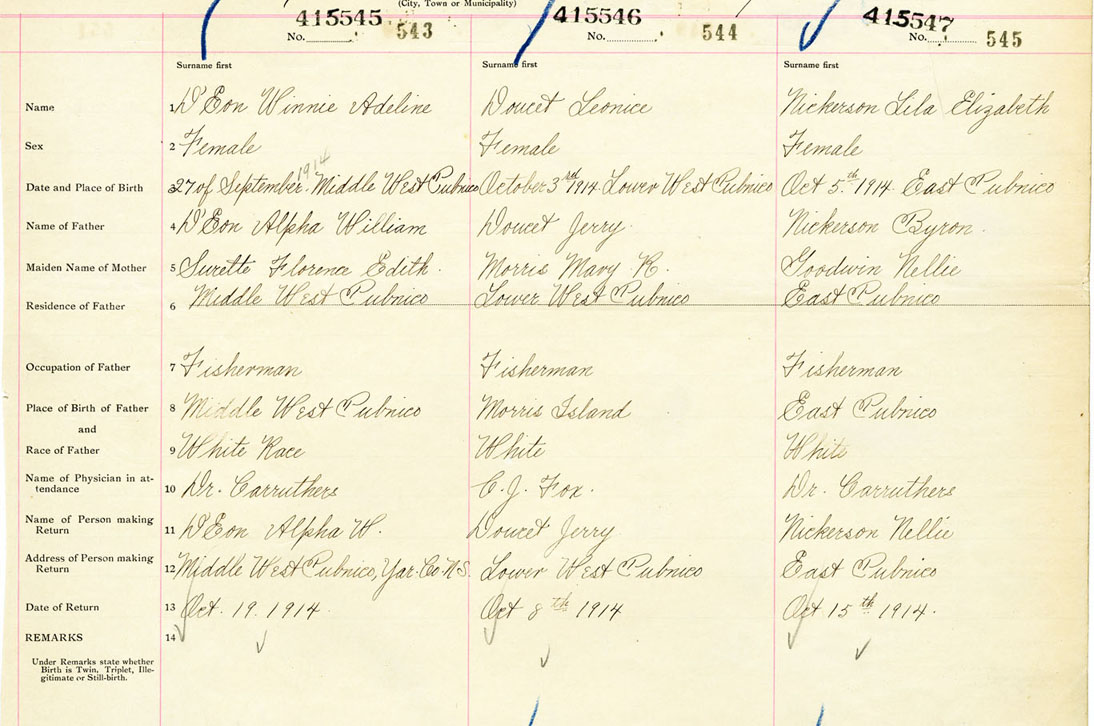 (City, Town or Municipality)
415545 415546 415547
No. 543 No. 544 No. 545
Surname first Surname first Surname first
Name 1 D'Eon Winnie Adeline Doucet Leonice Nickerson Lila Elizabeth
Sex 2 Female Female Female
1914
Date and Place of Birth 3 27 of September Middle West Pubnico October 3rd 1914 Lower West Pubnico Oct 5th 1914 East Pubnico
Name of Father 4 D'Eon Alpha William Doucet Jerry Nickerson Byron.
Maiden Name of Mother 5 Surette Florence Edith. Morris Mary K. Goodwin Nellie
Residence of Father 6 Middle West Pubnico Lower West Pubnico East Pubnico
Occupation of Father 7 Fisherman Fisherman Fisherman
Place of Birth of Father 8 Middle West Pubnico Morris Island East Pubnico
and
Race of Father 9 White Race White White
Name of Physician in at-
tendance 10 Dr. Carruthers C. J. Fox. Dr. Carruthers
Name of Person making
Return 11 D'Eon Alpha W. Doucet Jerry Nickerson Nellie
Address of Person making
Return 12 Middle West Pubnico, Yar. Co. N.S. Lower West Pubnico East Pubnico
Date of Return 13 Oct. 19. 1914. Oct 8th 1914 Oct 15th 1914.
REMARKS 14
Under Remarks state whether
Birth is Twin, Triplet, Ille-
gitimate or Still-birth.